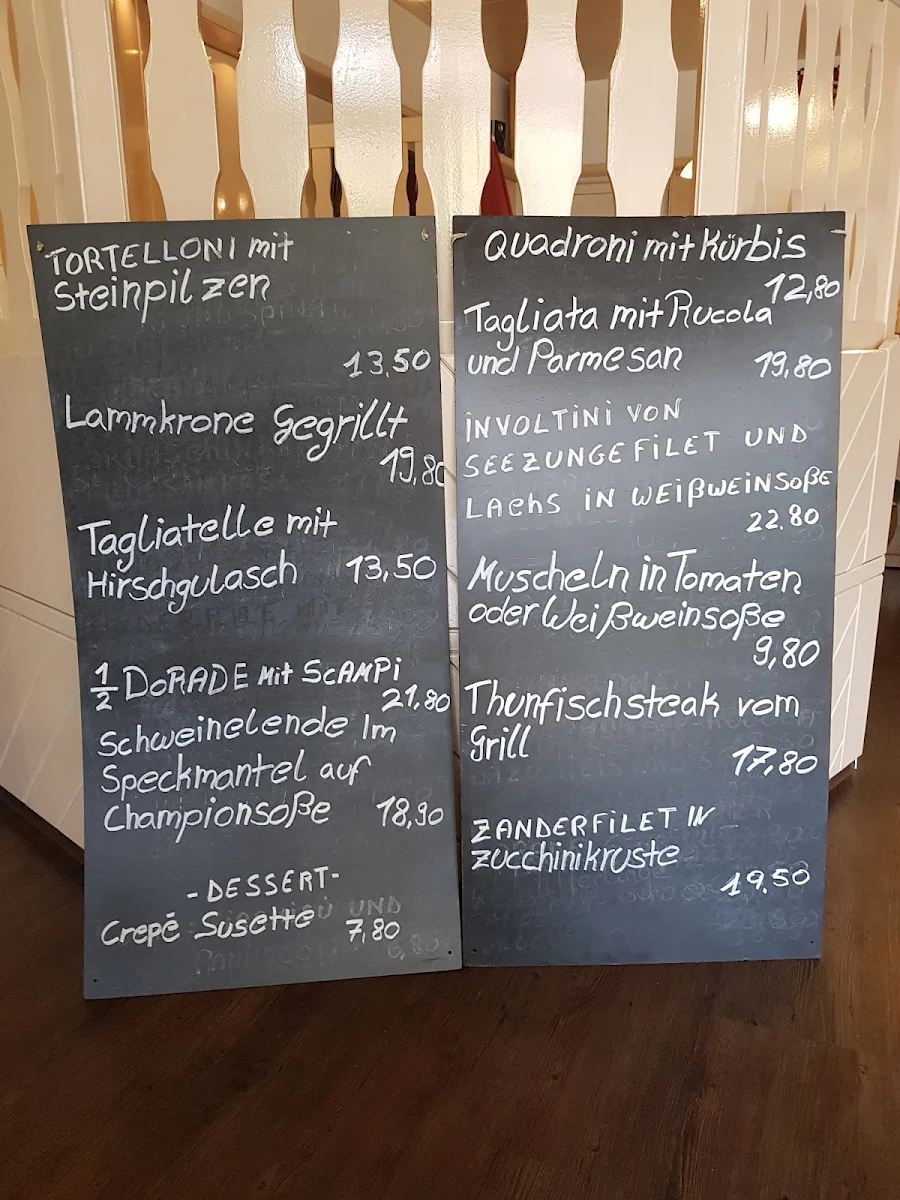 TORTELLONI mit
Steinpilzen
13,50
Lammkrone Gegrillt
19,80
Tagliatelle mit
Hirschgulasch 13,50
1/2 DORADE Mit SCAMPi
21,80
Schweinelende Im
Speckmantel auf
Championsoße 18,90
-DESSERT-
Crepē Susette 7,80
Quadroni mit Kürbis
12,80
Tagliata mit Rucola
und Parmesan 19,80
iNVOLTiNi VON
SEEZUNGEFiLET UND
LAchS iN WEißWEiNSoßE
22.80
Muscheln in Tomaten
oder Weißweinsoße
9,80
Thunfischsteak vom
Grill
17,80
ZANDERFiLET IN
Zucchinikruste
19.50